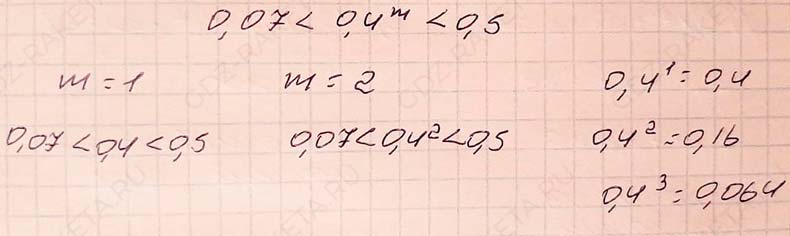 0,07 < 0,4^m < 0,5
m = 1 m = 2 0,4^1 = 0,4
0,07 < 0,4 < 0,5 0,07 < 0,4^2 < 0,5 0,4^2 = 0,16
0,4^3 = 0,064